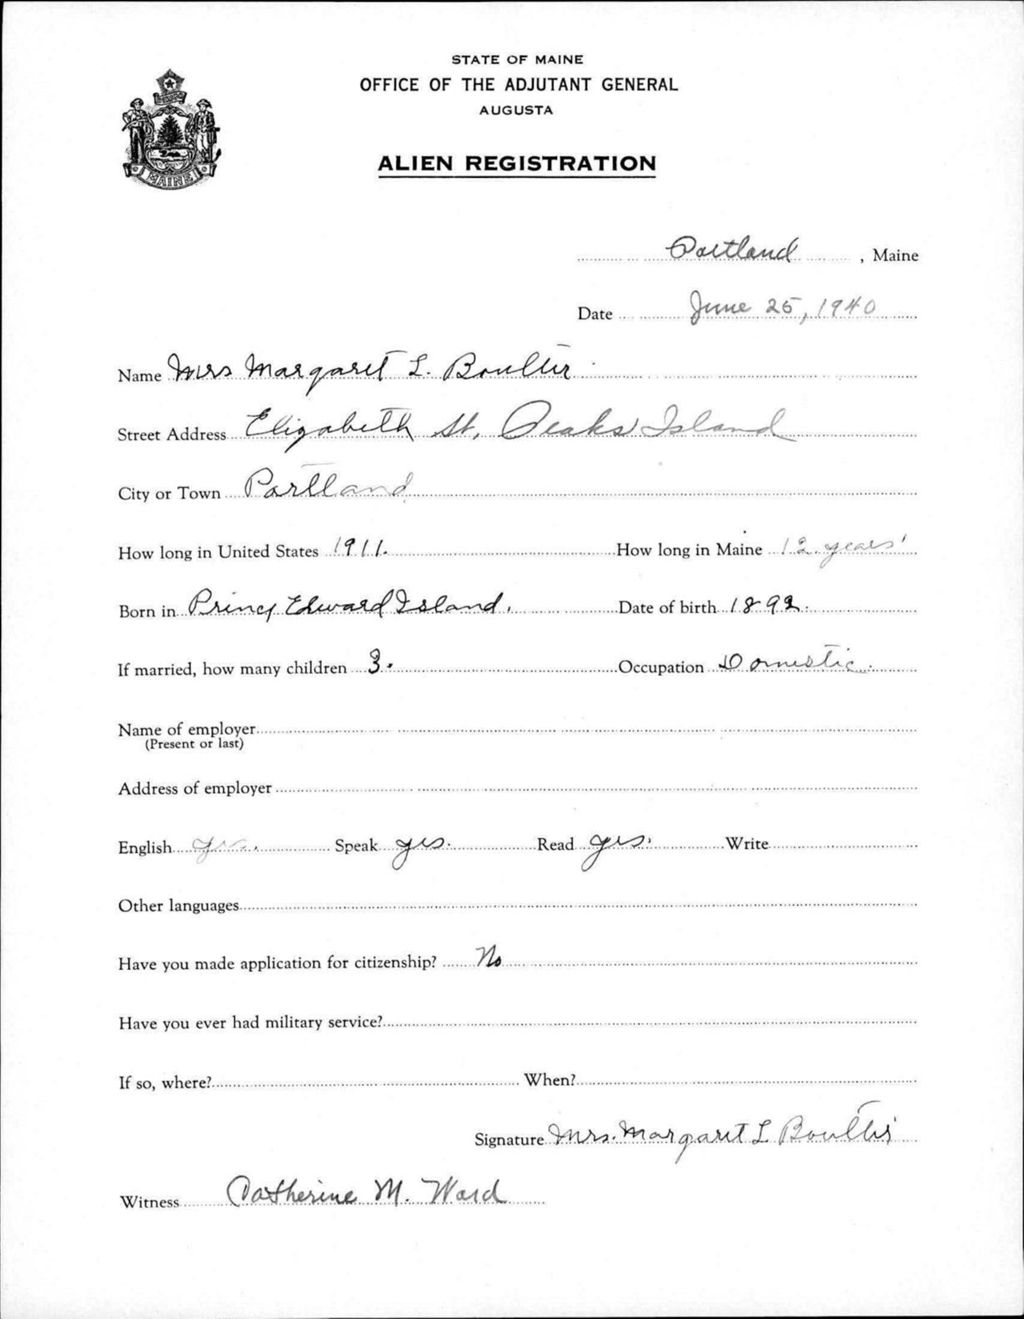 STATE OF MAINE
OFFICE OF THE ADJUTANT GENERAL
AUGUSTA
ALIEN REGISTRATION
MAINE
Portland, Maine
Date June 25, 1940
Name Mrs Margaret L. Boulter
Street Address Elizabeth St, Peaks Island
City or Town Portland
How long in United States 1911. How long in Maine 12 years
Born in Princ Edward Island. Date of birth 1892.
If married, how many children 3. Occupation Domestic.
Name of employer
(Present or last)
Address of employer
English yes. Speak yes. Read yes. Write
Other languages
Have you made application for citizenship? No
Have you ever had military service?
If so, where? When?
Signature Mrs. Margaret L Boulter
Witness Catherine M. Ward